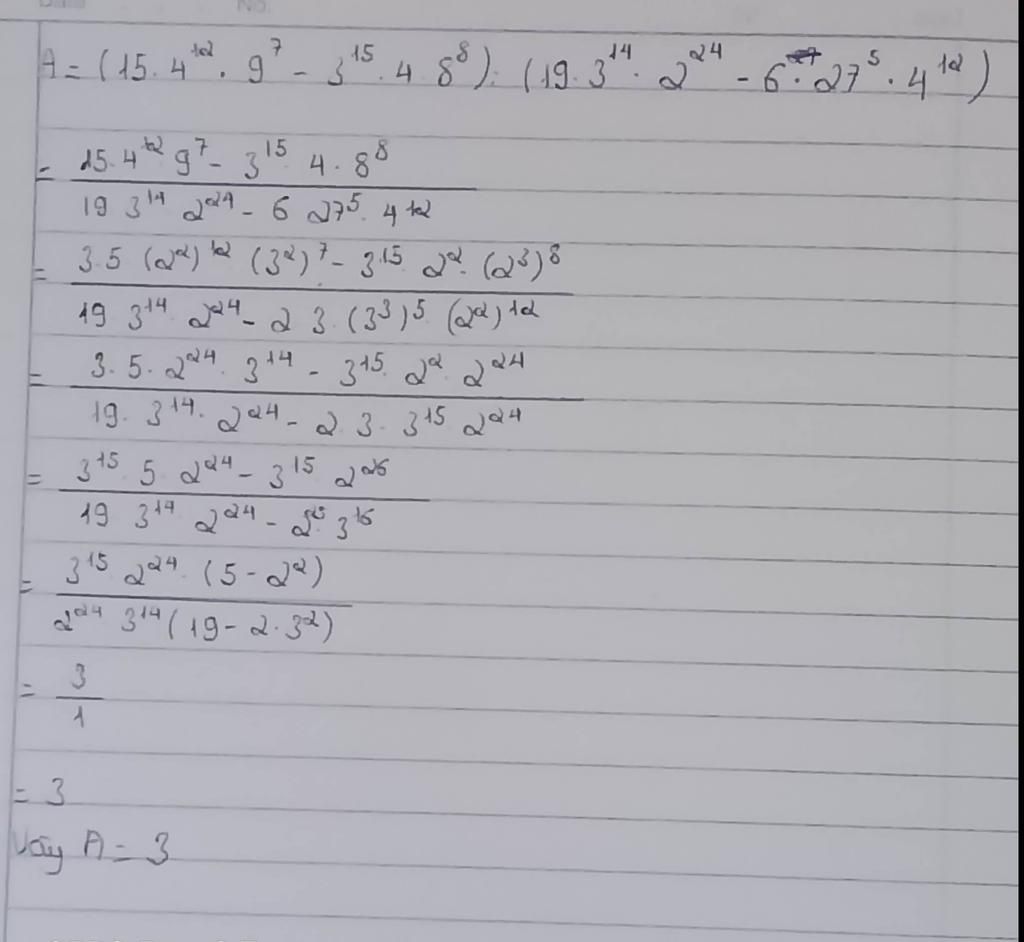 A = (15.4¹².9⁷ - 3¹⁵.4.8⁸):(19.3¹⁴.2²⁴ - 6.27⁵.4¹²)
= 15.4¹² 9⁷ - 3¹⁵ 4.8⁸
19 3¹⁴ 2²⁴ - 6 27⁵.4¹²
= 3.5 (2²)¹² (3²)⁷ - 3¹⁵ 2².(2³)⁸
19 3¹⁴ 2²⁴ - 2 3.(3³)⁵ (2²)¹²
= 3.5.2²⁴.3¹⁴ - 3¹⁵.2².2²⁴
19.3¹⁴.2²⁴ - 2.3.3¹⁵ 2²⁴
= 3¹⁵ 5.2²⁴ - 3¹⁵ 2²⁶
19 3¹⁴ 2²⁴ - 3¹⁶
= 3¹⁵ 2²⁴.(5 - 2²)
2²⁴ 3¹⁴(19 - 2.3²)
= 3
1
= 3
Vậy A = 3